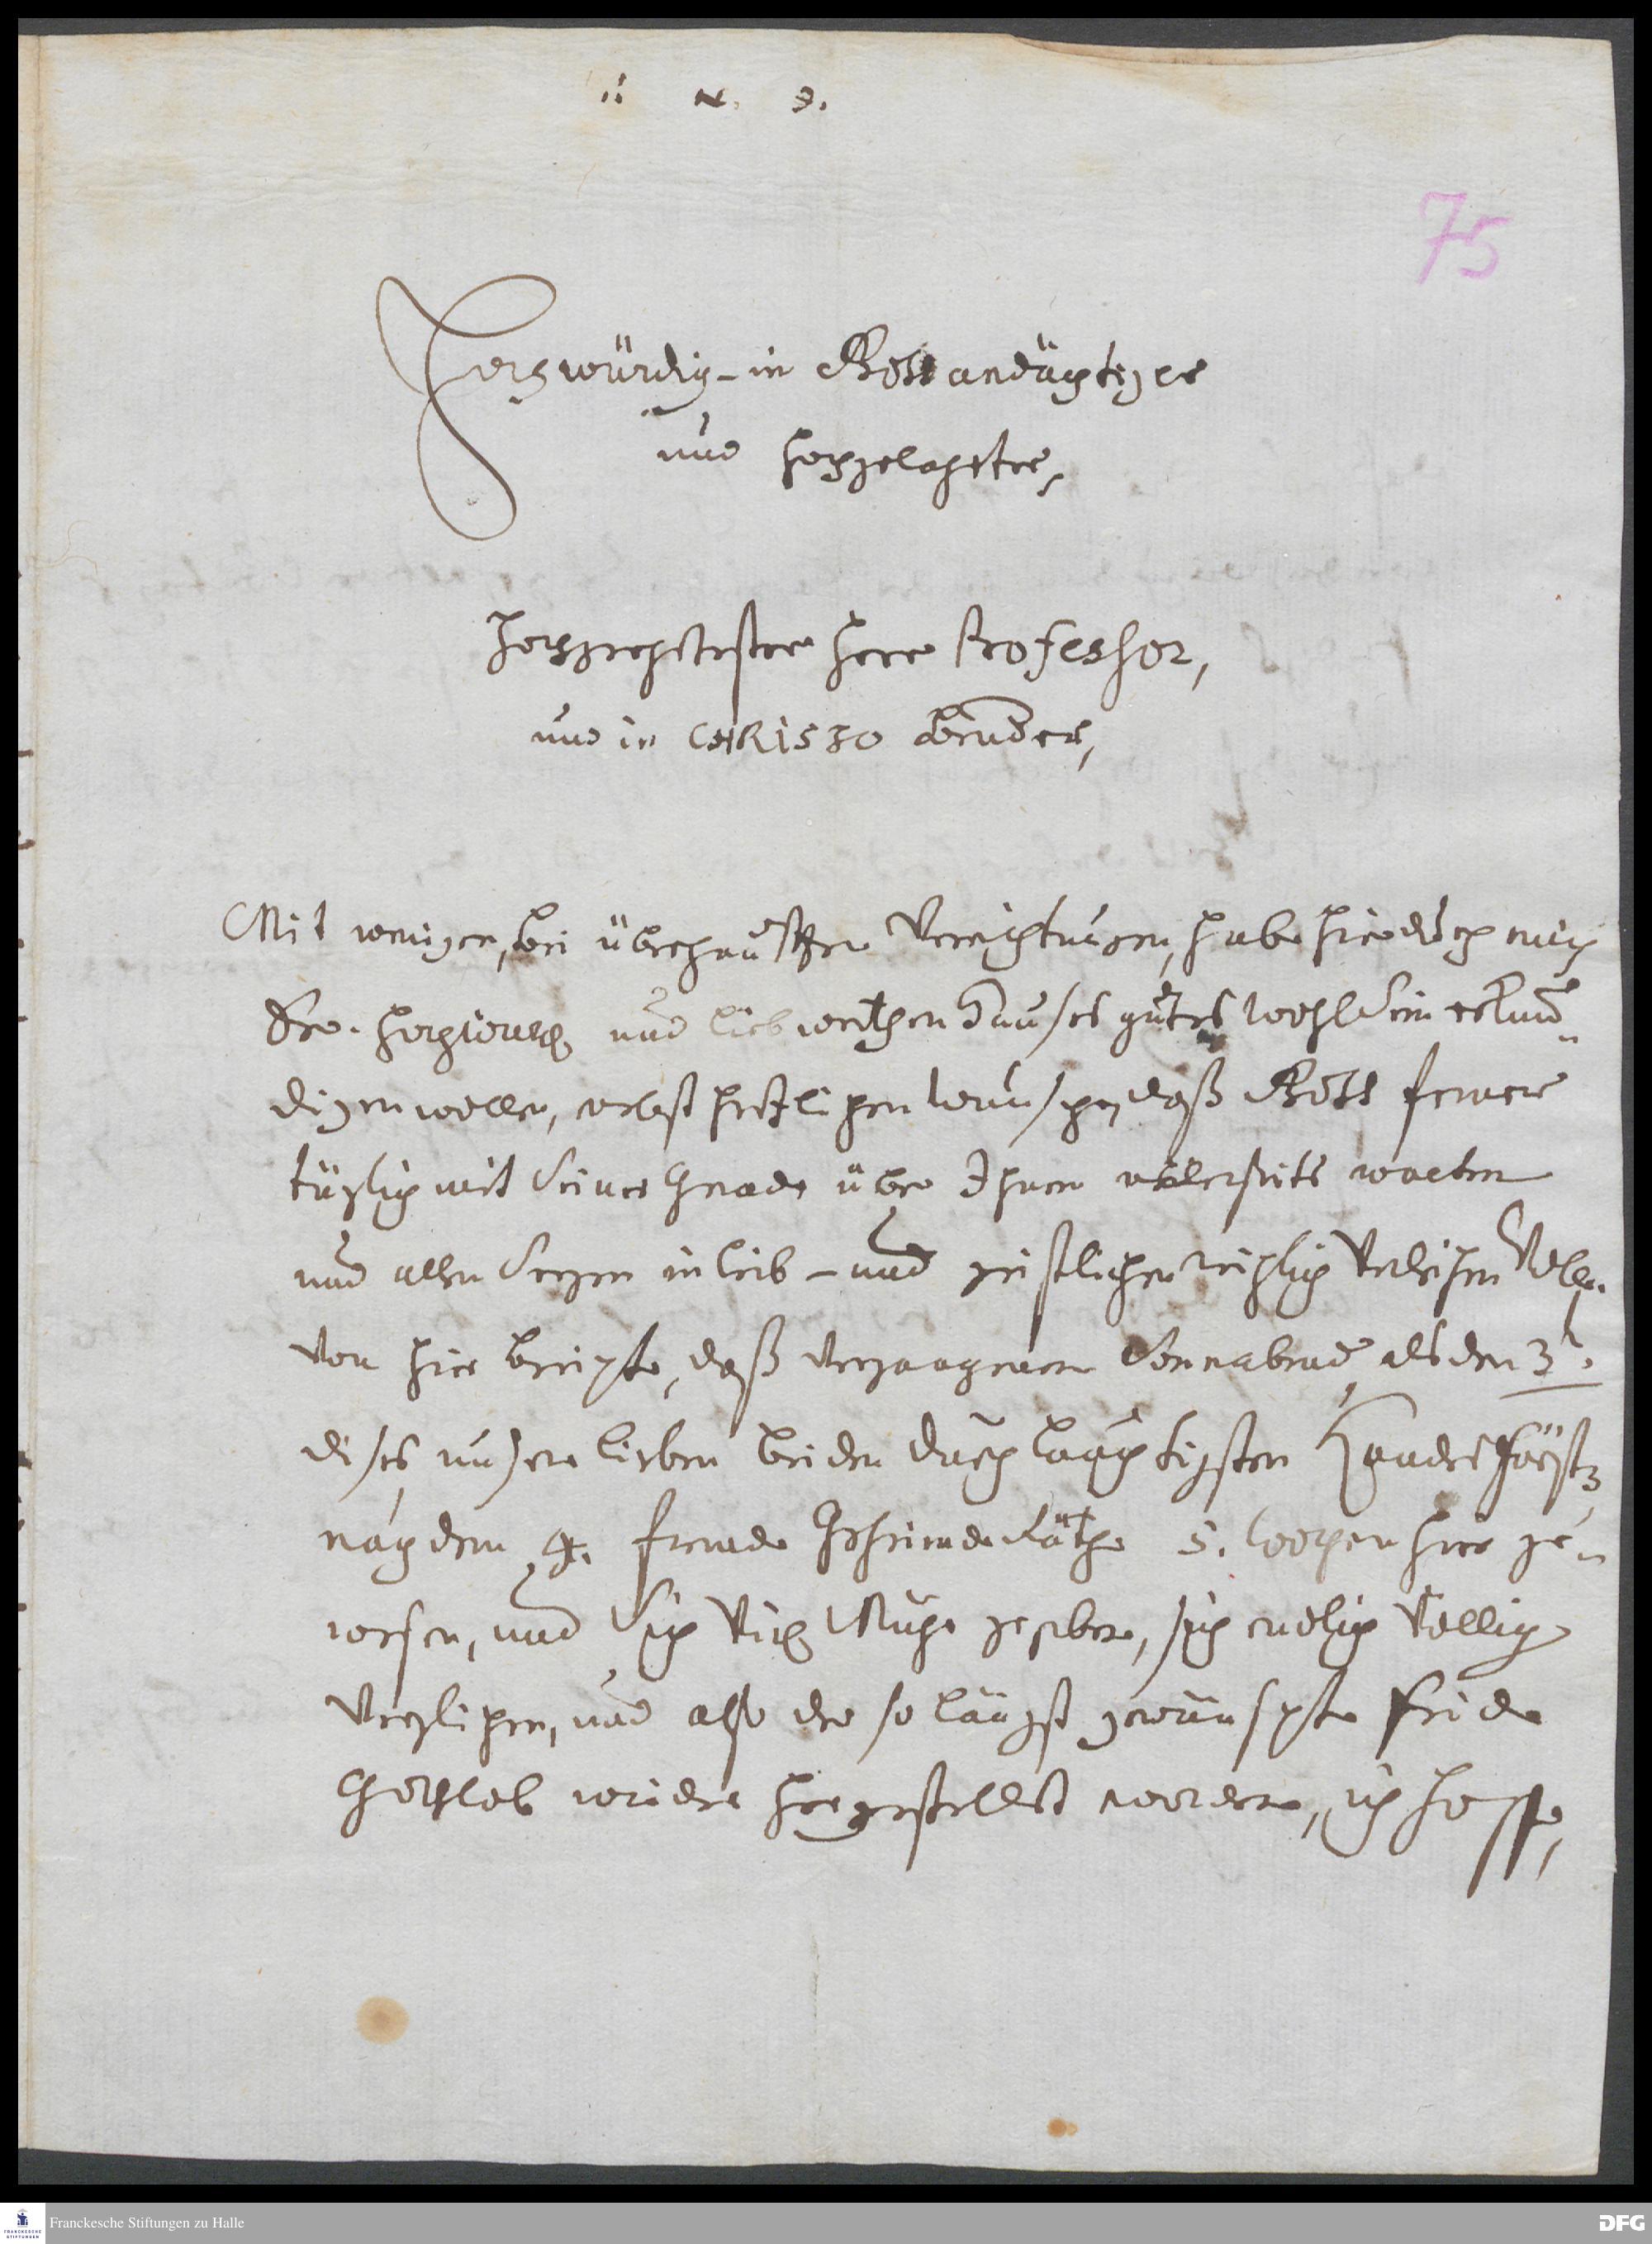 i. N. J.
75
Hochwürdig- in Gott andächtiger
und hochgelahrter,
Hochgeehrtester Herr Professor,
und in CHRISTO Bruder,
Mit wenigen, bei überhaufften Verrichtungen, habe hierdurch mich
Dero Hochwürd. und liebwerthen Hauses gutes Wohlsein erkun-
digen wollen, nebst hertzlichen Wunsch, daß Gott ferner
täglich mit Seiner Gnade über Ihnen allerseits walten
und allen Seegen in leib- und geistlichen reichlich Verleihen Wolle.
Von hier berichte, daß vergangenen Sonnabend, als den 3t.
dises, unsere lieben beiden durchlauchtigsten
nachdem 4. fremde Geheimde Räthe 5. Wochen hier ge-
wesen, und Sich Viel Mühe gegeben, sich endlich Völlig
Verglichen, und also der so längst gewünschte Fride
Gottlob wieder hergestellet worden, ich hoffe,
Franckesche Stiftungen zu Halle
FRANCKESCHE STIFTUNGEN
DFG